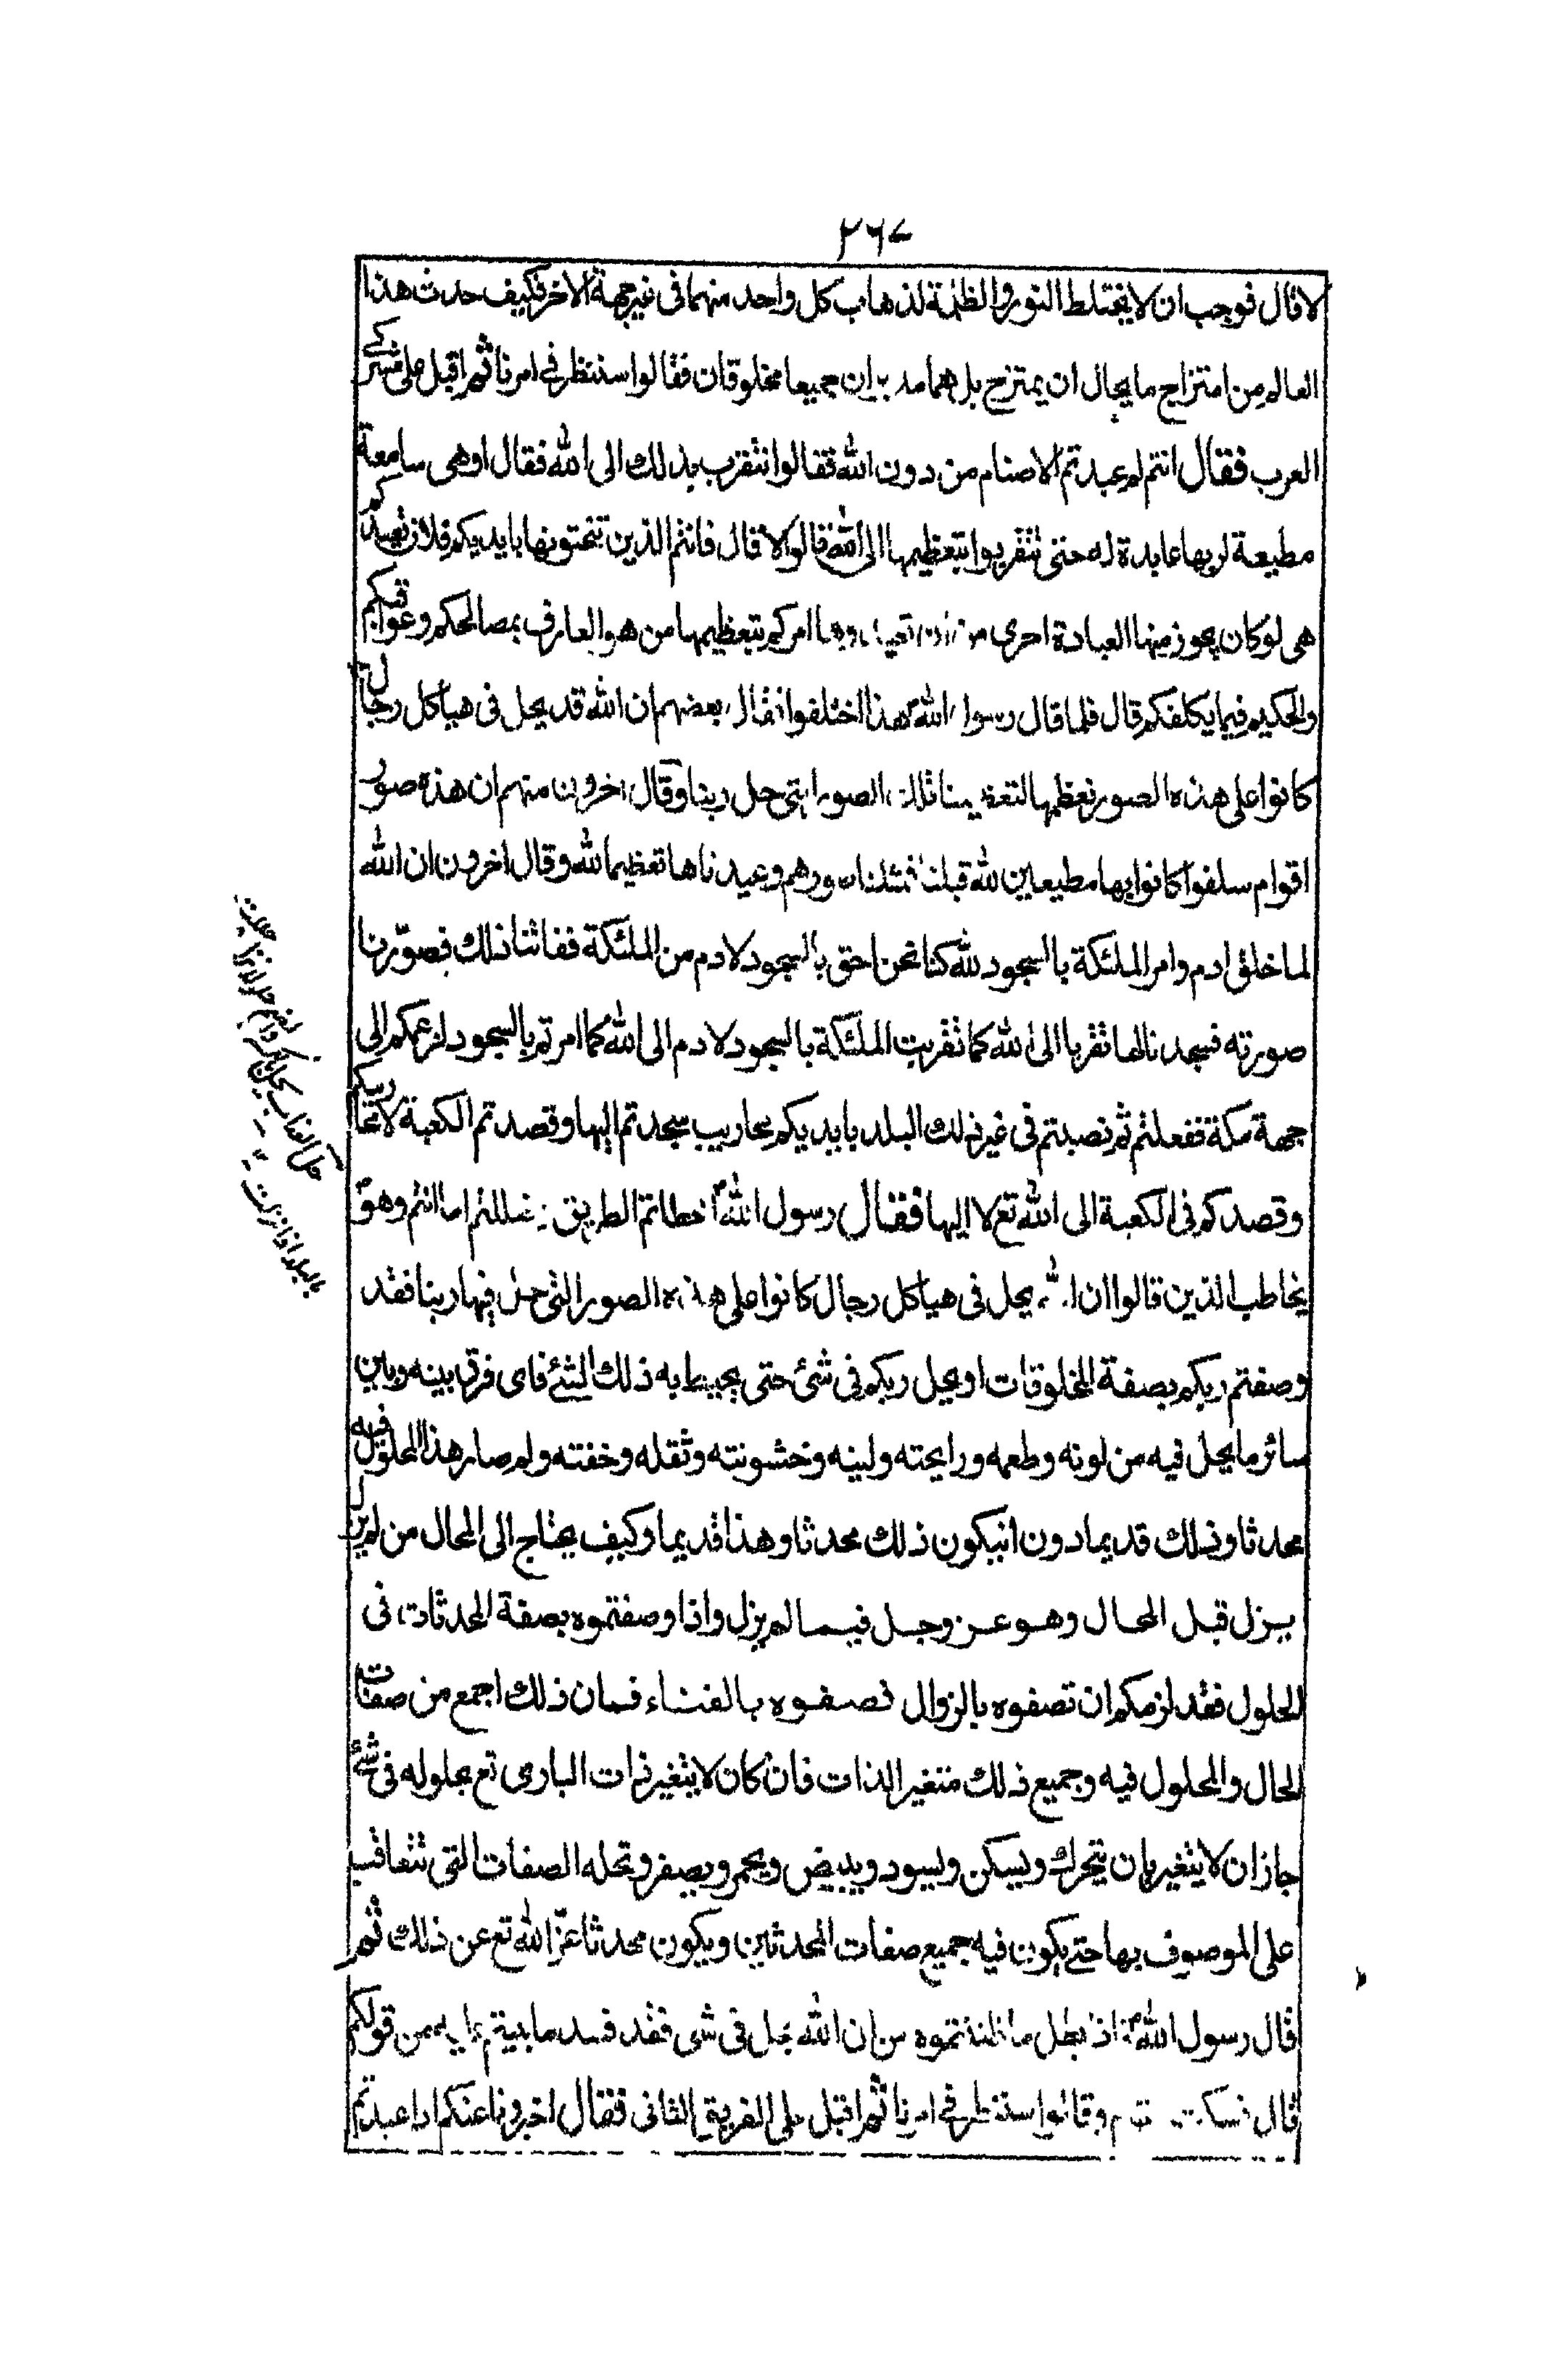 ٢٦٧
لا قال فوجب ان لا يختلط النور والظلمة لذهاب كل واحد منهما فى غير جهة الاخر فكيف حدث هذا
العالم من امتزاج ما يحال ان يمتزج بل هما مدبران جميعا مخلوقان فقالوا سننظر فى امرنا ثم اقبل على مشركى
العرب فقال انتم لم عبدتم الاصنام من دون الله فقالوا نتقرب بذلك الى الله فقال او هى سامعة
مطيعة لربها عابدة له حتى تتقربوا بتعظيمها الى الله قالوا لا قال فانتم الذين تنحتونها بايديكم فلان تعبدكم
هى لو كان يجوز منها العبادة احرى من ان تعبدوها امركم بتعظيمها من هو العارف بمصالحكم وعواقبكم
والحكيم فيما يكلفكم قال فلما قال رسول الله ص هذا اختلفوا فقال بعضهم ان الله قد يحل فى هياكل رجال
كانوا على هذه الصور نعظمها لتعظيمنا تلك الصور التى حل ربنا وقال اخرون منهم ان هذه صور
اقوام سلفوا كانوا بها مطيعين لله قبلنا فمثلنا صورهم وعبدناها تعظيما لله وقال اخرون ان الله
لما خلق ادم وامر الملئكة بالسجود لله كنا نحن احق بالسجود لادم من الملئكة ففاتنا ذلك فصوّرنا
صورته فسجدنا لها تقربا الى الله كما تقربت الملئكة بالسجود لادم الى الله كما امرتم بالسجود لزعمكم الى
جهة مكة ففعلتم ثم نصبتم فى غير ذلك البلد بايديكم محاريب سجدتم اليها وقصدتم الكعبة لا محاريبكم
وقصدكم فى الكعبة الى الله تع لا اليها فقال رسول الله ص اخطاتم الطريق وضللتم اما انتم وهو
يخاطب الذين قالوا ان الله يحل فى هياكل رجال كانوا على هذه الصور التى حل فيها ربنا فقد
وصفتم ربكم بصفة المخلوقات او يحل ربكم فى شئ حتى يحيط به ذلك الشئ فاى فرق بينه وبين
سائر ما يحل فيه من لونه وطعمه ورايحته ولينه وخشونته وثقله وخفته ولم صار هذا المحلول فيه
محدثا وذلك قديما دون ان يكون ذلك محدثا وهذا قديما وكيف يحتاج الى المحال من لم يزل
يزل قبل المحال وهو عز وجل فيما لم يزل واذا وصفتموه بصفة المحدثات فى
الحلول فقد لزمكم ان تصفوه بالزوال فصفوه بالفناء فان ذلك اجمع من صفات
الحال والمحلول فيه وجميع ذلك متغير الذات فان كان لا يتغير ذات البارى تع بحلوله فى شئ
جاز ان لا يتغير بان يتحرك ويسكن ويسود ويبيض ويحمر ويصفر وتحله الصفات التى تتعاقب
على الموصوف بها حتى يكون فيه جميع صفات المحدثين ويكون محدثا عزّ الله تع عن ذلك ثم
قال رسول الله ص فاذا بطل ما ظننتموه من ان الله يحل فى شى فقد فسد ما بنيتم عليه من قولكم
قال فسكت القوم وقالوا سننظر فى امرنا ثم اقبل على الفريق الثانى فقال اخبرونا عنكم اذا عبدتم